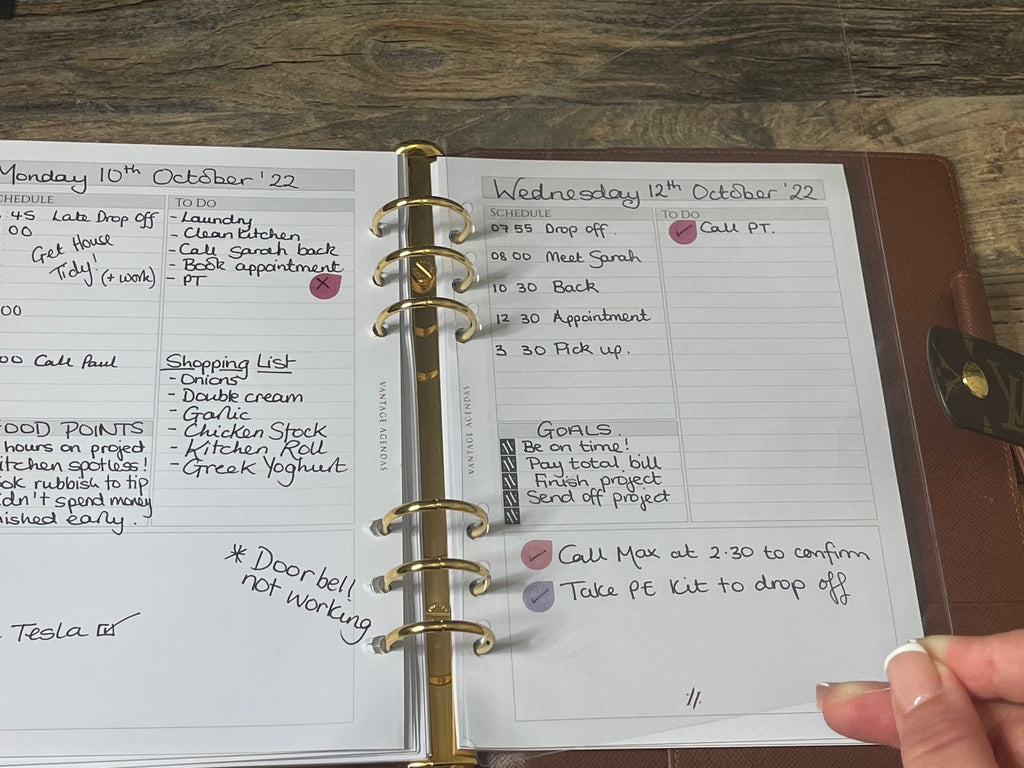 Monday 10th October '22
SCHEDULE
45 Late Drop off
00
Get House
Tidy! (+ work)
00
00 Call Paul
TO DO
- Laundry
- Clean kitchen
- Call Sarah back
- Book appointment
- PT
Shopping List
- Onions
- Double cream
- Garlic
- Chicken Stock
- Kitchen Roll
- Greek Yoghurt
POINTS
hours on project
spotless!
rubbish to tip
spend money
early.
* Doorbell
not working
Tesla
VANTAGE AGENDAS
VANTAGE AGENDAS
Wednesday 12th October '22
SCHEDULE
07 55 Drop off.
08 00 Meet Sarah
10 30 Back
12 30 Appointment
3 30 Pick up.
TO DO
Call PT.
GOALS.
Be on time!
Pay total bill
Finish project
Send off project
Call Max at 2.30 to confirm
Take PE Kit to drop off